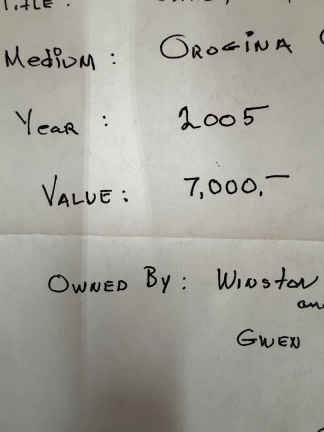 Title :
Medium : OROGINA
Year : 2005
VALUE : 7,000.—
OWNED By : Winston
and
GWEN